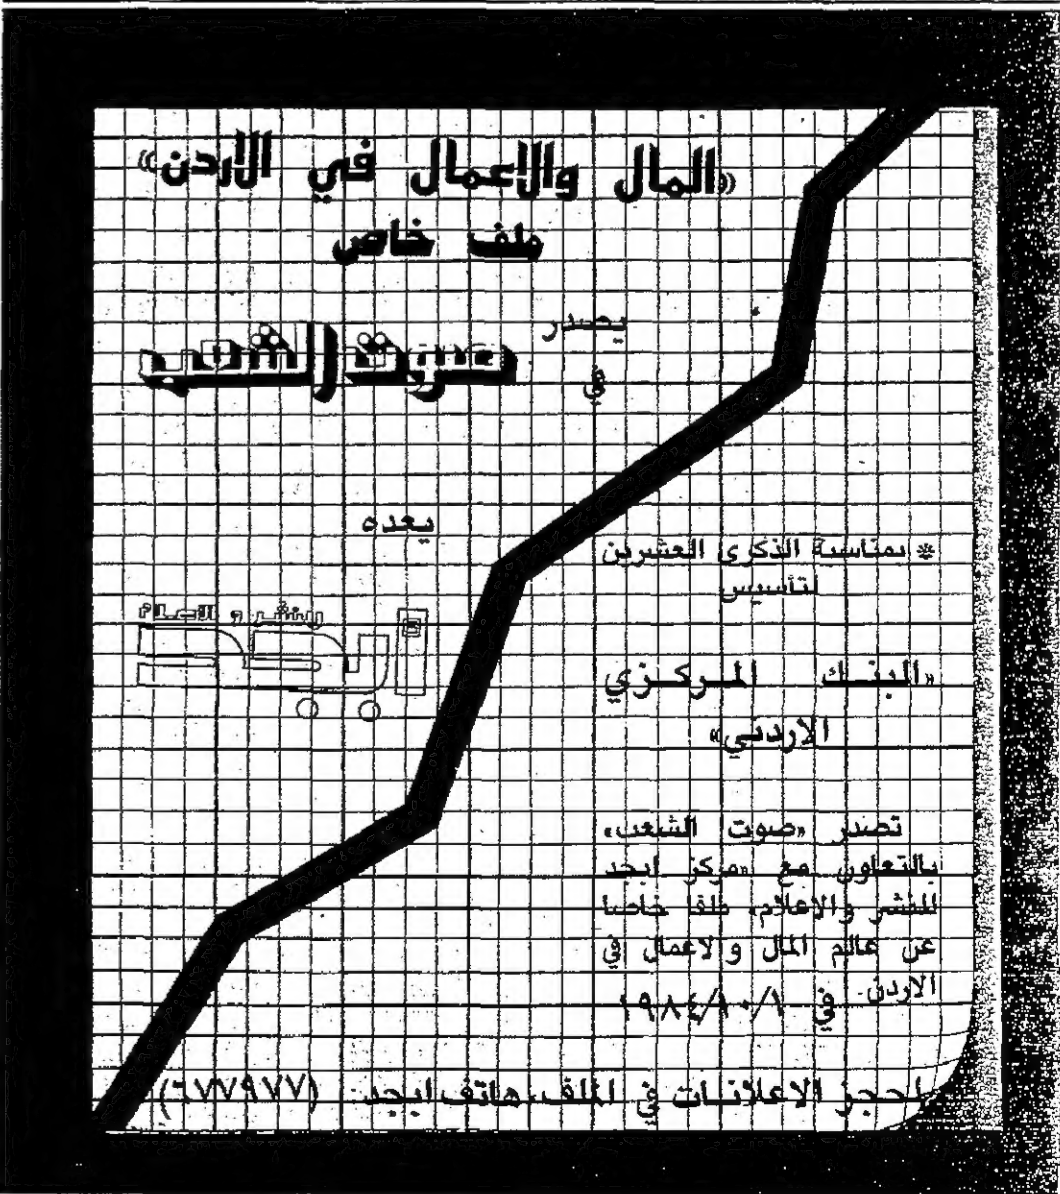 «المال والاعمال في الاردن»
ملف خاص
يصدر
في
صوت الشعب
يعده
ابجد
للنشر و الاعلام
* بمناسبة الذكرى العشرين
لتأسيس
«البنك المركزي
الاردني»
تصدر «صوت الشعب»
بالتعاون مع «مركز ابجد
للنشر والاعلام» ملفا خاصا
عن عالم المال والاعمال في
الاردن في ١٩٨٤/١٠/١
لحجز الاعلانات في الملف، هاتف ابجد (٦٧٧٩٧٧)